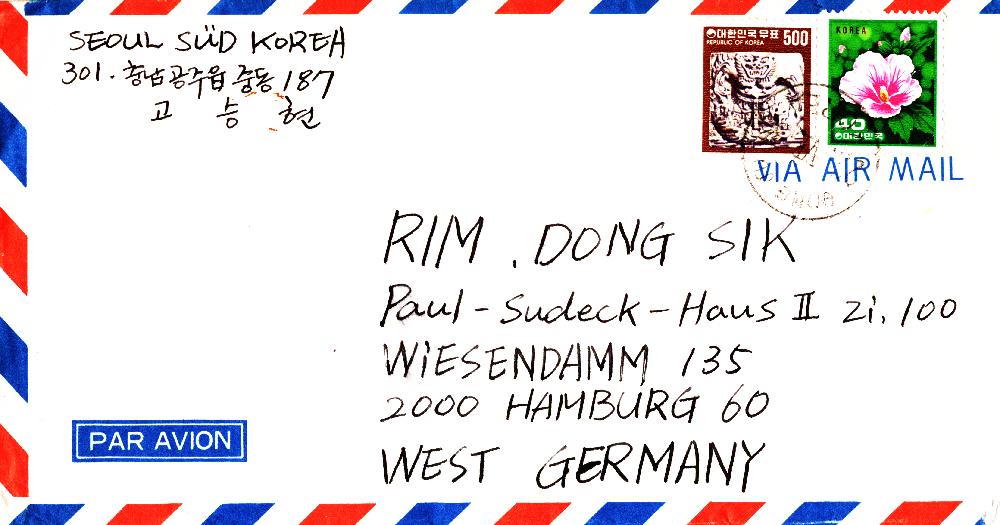 SEOUL SÜD KOREA
301. 충남 공주읍 중동 187
고 승 현
대한민국우표 500
REPUBLIC OF KOREA
KOREA
40
대한민국
VIA AIR MAIL
RIM . DONG SIK
Paul-Sudeck-Haus II Zi. 100
WiESENDAMM 135
2000 HAMBURG 60
WEST GERMANY
PAR AVION